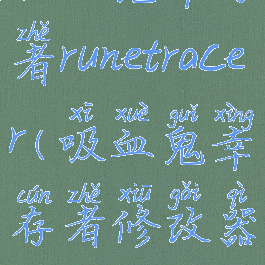 zhě
者runetrace
xī xuè guǐ xìng
r(吸血鬼幸
cún zhě xiū gǎi qì
存者修改器